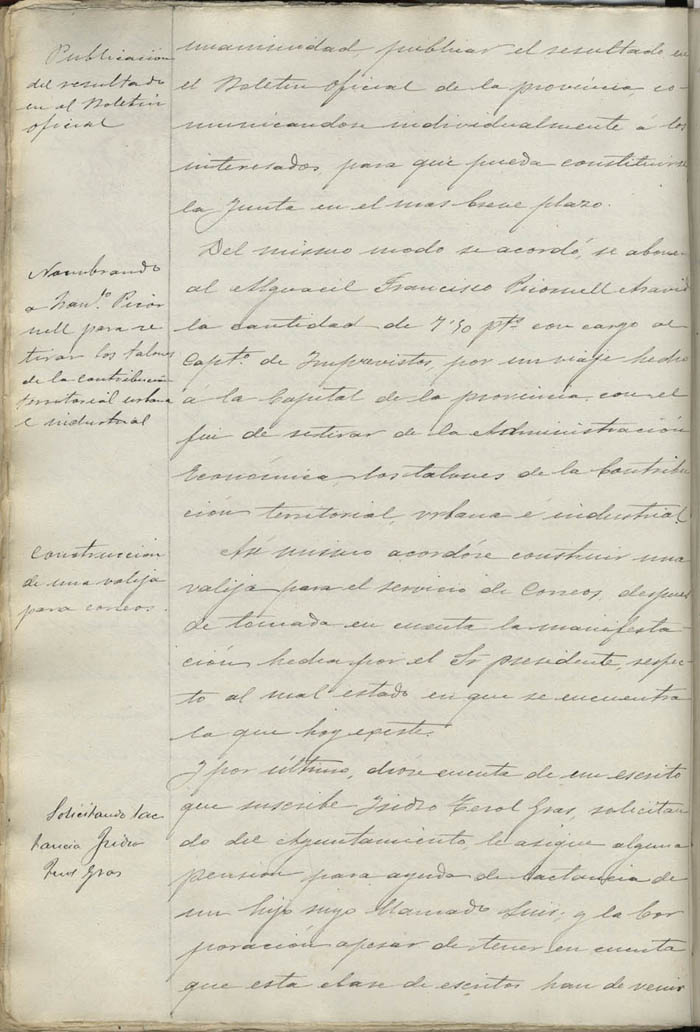 Publicación
del resultado
en el Boletín
oficial
unanimidad, publicar el resultado en
el Boletín oficial de la provincia, co-
municandose individualmente á los
interesados para que pueda constituirse
la Junta en el mas breve plazo.
Nombrando
a Fran.co Picor
nell para re
tirar los talones
de la contribución
territorial urbana
e industrial
Del mismo modo se acordó, se abone
al Alguacil Francisco Picornell
la cantidad de 7'50 pts con cargo al
Capt.o de Imprevistos, por un viaje hecho
á la Capital de la provincia, con el
fin de retirar de la Administración
Económica los talones de la Contribu
ción territorial, urbana é industrial.
Construcción
de una valija
para correos.
Asi mismo acordóse construir una
valija para el servicio de Correos, despues
de tomada en cuenta la manifesta-
ción hecha por el Sr presidente, respec-
to al mal estado en que se encuentra
la que hoy existe.
Solicitando lac
tancia Isidro
Gras
Y por último, diose cuenta de un escrito
que suscribe Isidro Terol Gras, solicitan
do del Ayuntamiento, le asigne alguna
pension para ayuda de lactancia de
un hijo suyo llamado Luis; y la Cor
poración apesar de tener en cuenta
que esta clase de escritos han de venir